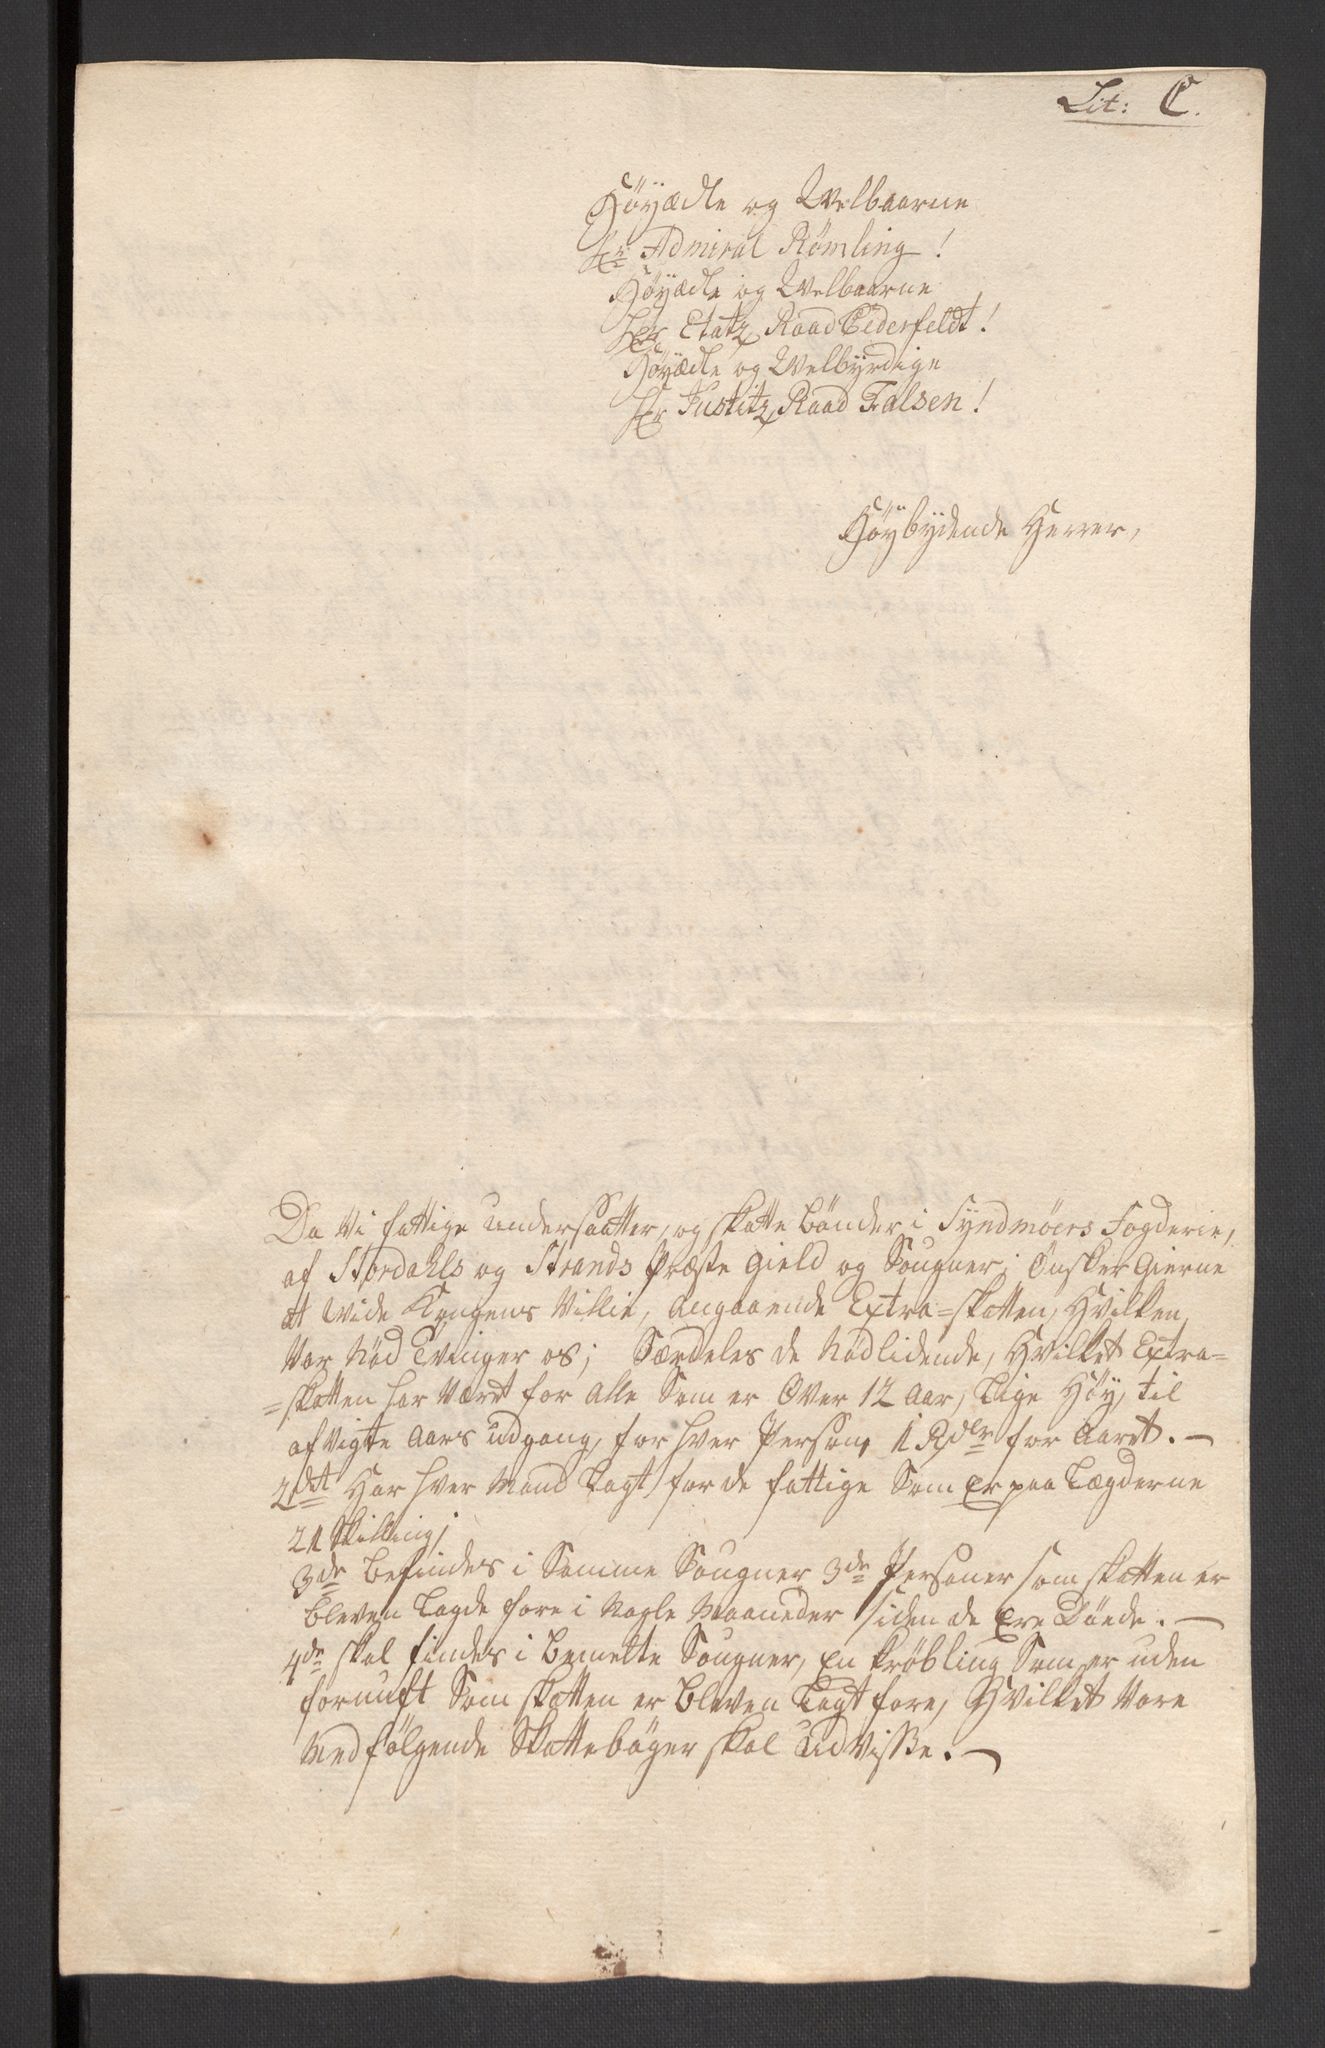 Lit: C.
Höÿædle og Welbaarne
Hr: Admiral Römling!
Höÿædle og Welbaarne
Her Etatz Raad Cederfeldt!
Höÿædle og Welbÿrdige
Her Justitz Raad Falsen!
Höÿbÿdende Herrer,
Da Vi fattige undersaatter, og skatte bönder i Syndmöers Fogderie,
af Stordahls og Strands Præste Gield og Sougner; Önsker Gierne
at Wide Kongens Villie, angaaende Extra=skatten, Hvilken
Vor Nöd Tvinger os; Særdeles de Nödlidende, Hvilket Extra=
=skatten har Været for Alle Som er Over 12 Aar, Lige Höÿ, til
afvigte Aars udgang, for hver Person, 1 Rdlr for Aaret. —
2det Har hver Mand Lagt for de fattige Som Er paa Lægderne
21 Skilling;
3de befindes i Samme Sougner 3de Personer som skatten er
bleven Lagde fore i Nogle Maaneder siden de Ere Döede. —
4de skal findes i bemelte Sougner, En Kröbling Som er uden
fornuft Som skatten er Bleven Lagt fore, Hvilket Vore
Medfölgende Skatteböger skal Udvisse. —